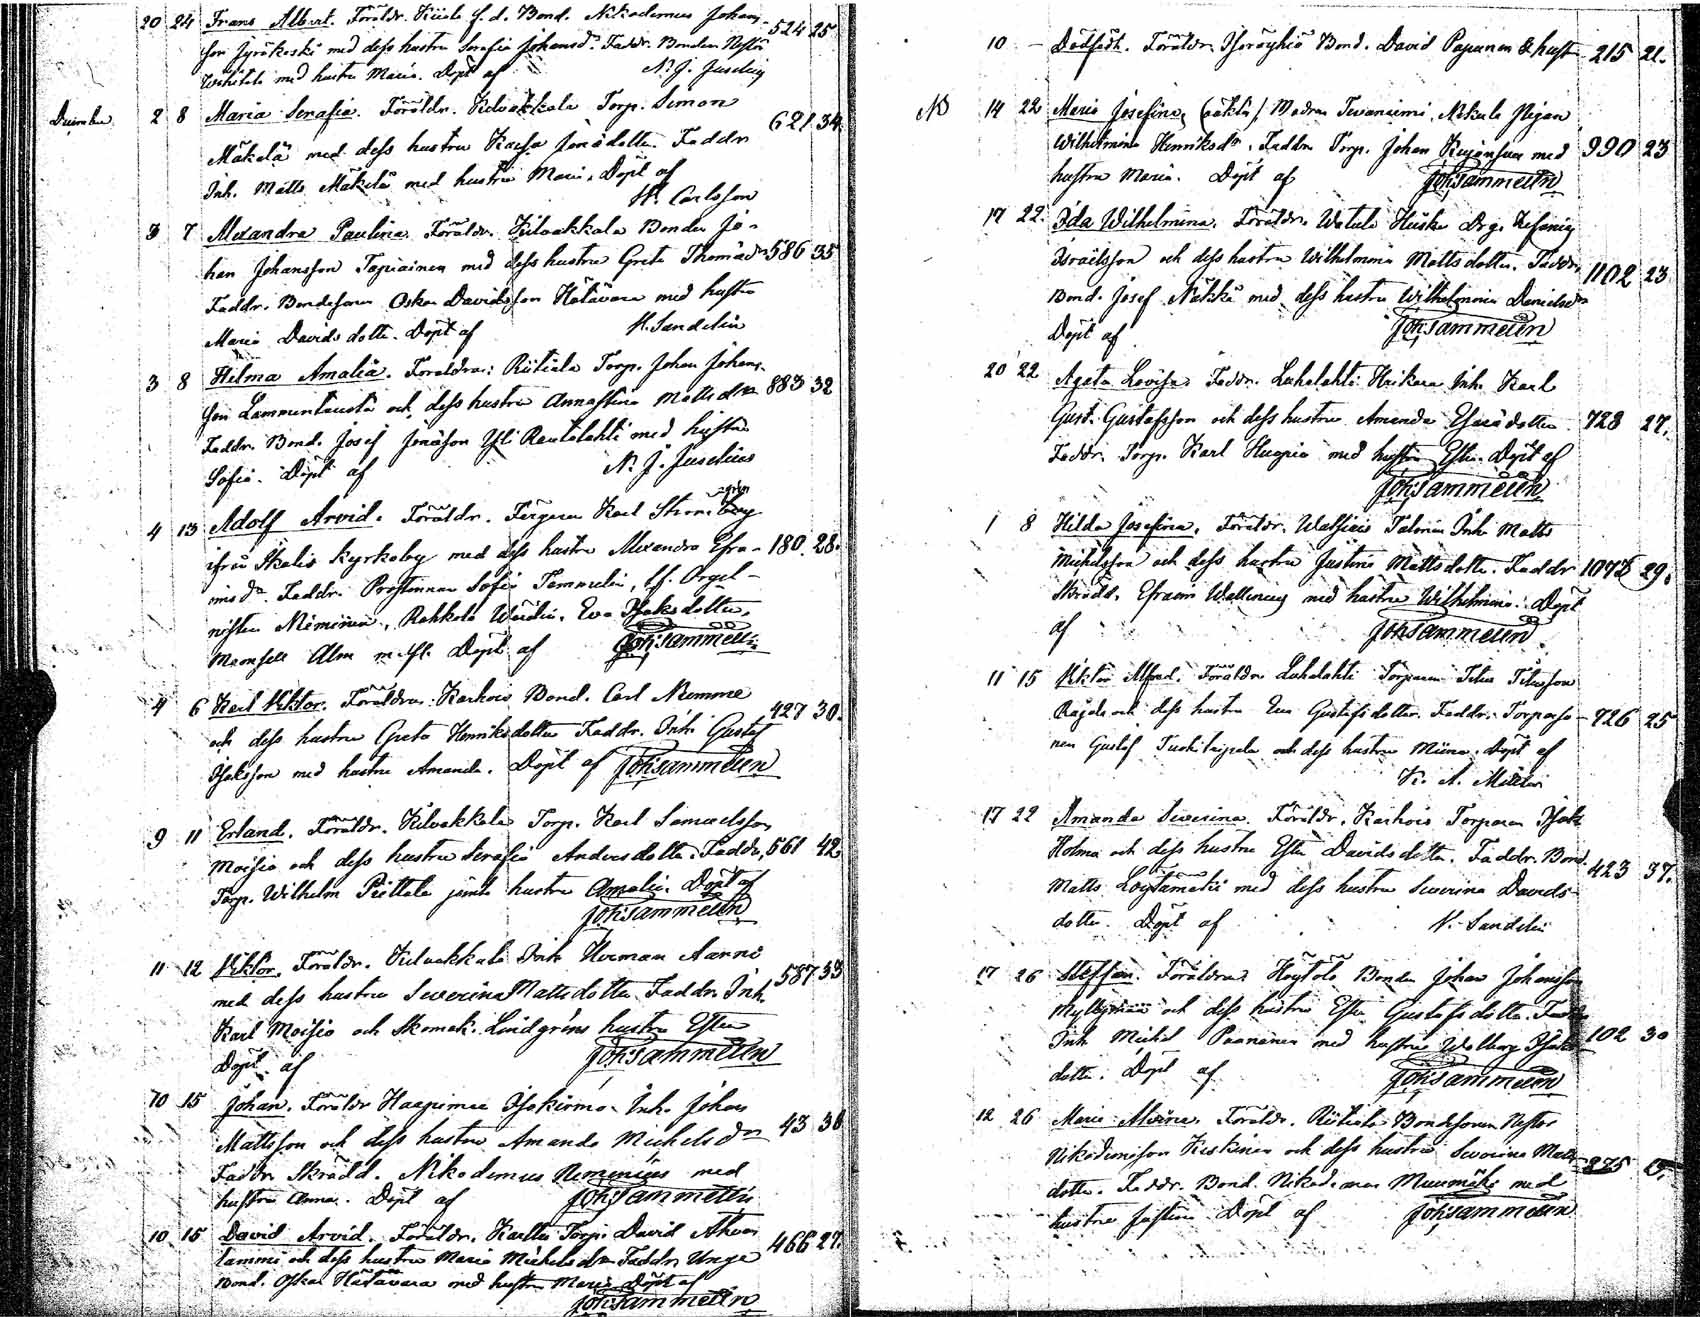 20 24 Frans Albert. Föräldr. f. d. Bond. Nikodemus Johans-
son Jyräkoski med dess hustru Serafia Johansdr. Faddr. Bonden Nestor 524 25
med hustru Maria. Döpt af N. J. Juselius
December 2 8 Maria Serafia. Föräldr. Kilvakkala Torp. Simon
Mäkelä med dess hustru Kaisa Jonädotter. Faddr 621 34.
Inh. Matts Mäkelä med hustru Maria. Döpt af
H. Carlsson
3 7 Alexandra Paulina. Föräldr. Kilvakkala Bonden Jo-
han Johansson Tapiainen med dess hustru Greta Thomasdr 586 35
Faddr. Bondesonen Oskar Davidsson Hätävara med hustru
Maria Davidsdotter. Döpt af H. Sandelin
3 8 Hilma Amalia. Föräldrar: Riitiala Torp. Johan Johans-
son Lammentausta och dess hustru Annastina Mattsdr 883 32
Faddr. Bond. Josef Jonäson Yli Rautalahti med hustru
Sofia. Döpt af N. J. Juselius
4 13 Adolf Arvid. Föräldr. Färgaren Karl Strömberg
ifrån Ikalis kyrkoby med dess hustru Alexandra Efra- 180. 28.
imsdr. Faddr. Prostinnan Sofia Tammelin, Orgel-
nisten Niminen, Rahkola Eva Isaksdotter,
Mamsell Alm m. fl. Döpt af Joh. Tammelin
4 6 Karl Viktor. Föräldrar: Karhois Bond. Carl Nemme
och dess hustru Greta Henriksdotter Faddr. Inh. Gustaf 427 30.
Isaksson med hustru Amanda. Döpt af Joh. Tammelin
9 11 Erland. Föräldr. Kilvakkala Torp. Karl Samuelsson
Moisio och dess hustru Serafia Andersdotter. Faddr. 561 42
Torp. Wilhelm Piettala jemte hustru Amalia. Döpt af
Joh. Tammelin
11 12 Viktor. Föräldr. Kilvakkala Inh. Herman Aanni
med dess hustru Severina Mattsdotter. Faddr. Inh. 587 33
Karl Moisio och Skomak. Lindgréns hustru Ester
Döpt af Joh. Tammelin
10 15 Johan. Föräldr Haapimaa Isokirmo. Inh. Johan
Mattsson och dess hustru Amanda Michelsdr 43 38
Faddr. Skrädd. Nikodemus Nemenius med
hustru Anna. Döpt af Joh. Tammelin
10 15 David Arvid. Föräldr. Karttu Torp. David Ahven
lammi och dess hustru Maria Michelsdr Faddr. Unge 466 27.
Bond. Oskar Hätävara med hustru Maria. Döpt af
Joh. Tammelin
10 – Dödfödt. Föräldr. Isoröyhiö Bond. David Papunen & hustr 215 21.
14 22 Maria Josefina, (oäkta) Modren Tevaniemi, Nikula Pigan
Wilhelmina Henriksdr. Faddrar Torp. Johan Kujansuu med 990 23
hustru Maria. Döpt af Joh. Tammelin
17 22. Ida Wilhelmina. Föräldr. Watula Huska Drg. Zefanias
Israelsson och dess hustru Wilhelmina Mattsdotter. Faddr. 1102 23
Bond. Josef Näkki med dess hustru Wilhelmina Danielsdr
Döpt af Joh. Tammelin
20 22 Agata Lovisa. Faddr. Luhalahti Inh. Karl
Gust. Gustafsson och dess hustru Amanda Esaiädotter 728 27.
Faddr. Torp. Karl Kuapio med hustru Ester. Döpt af
Joh. Tammelin
1 8 Hilda Josefina. Föräldr. Inh. Matts
Michelsson och dess hustru Justina Mattsdotter. Faddr 1073 29.
Skrädd. Efraim Wallenius med hustru Wilhelmina. Döpt
af Joh. Tammelin
11 15 Viktor Alfred. Föräldr Luhalahti Torparen Titus Titusson
Rajala och dess hustru Eva Gustafsdotter. Faddr. Torpareso- 726 25
nen Gustaf Tuokitaipala och dess hustru Miina. Döpt af
K. A. Mälén
17 22 Amanda Severina. Föräldr. Karhois Torparen Isak
Holma och dess hustru Ester Davidsdotter. Faddr. Bond. 423 37.
Matts Löytämäki med dess hustru Severina Davids-
dotter. Döpt af H. Sandelin
17 26 Steffan. Föräldrar Höytölä Bonden Johan Johansson
Myllymaa och dess hustru Ester Gustafsdotter. Faddr.
Inh. Michel Paananen med hustru Walborg Isaks- 102 30
dotter. Döpt af Joh. Tammelin
12 26 Maria Alvina. Föräldr. Riitiala Bondesonen Nestor
Nikodemusson Keskinen och dess hustru Severina Matts-
dotter. Faddr. Bond. Nikodemus Muumäki med 275
hustru Justina Döpt af Joh. Tammelin